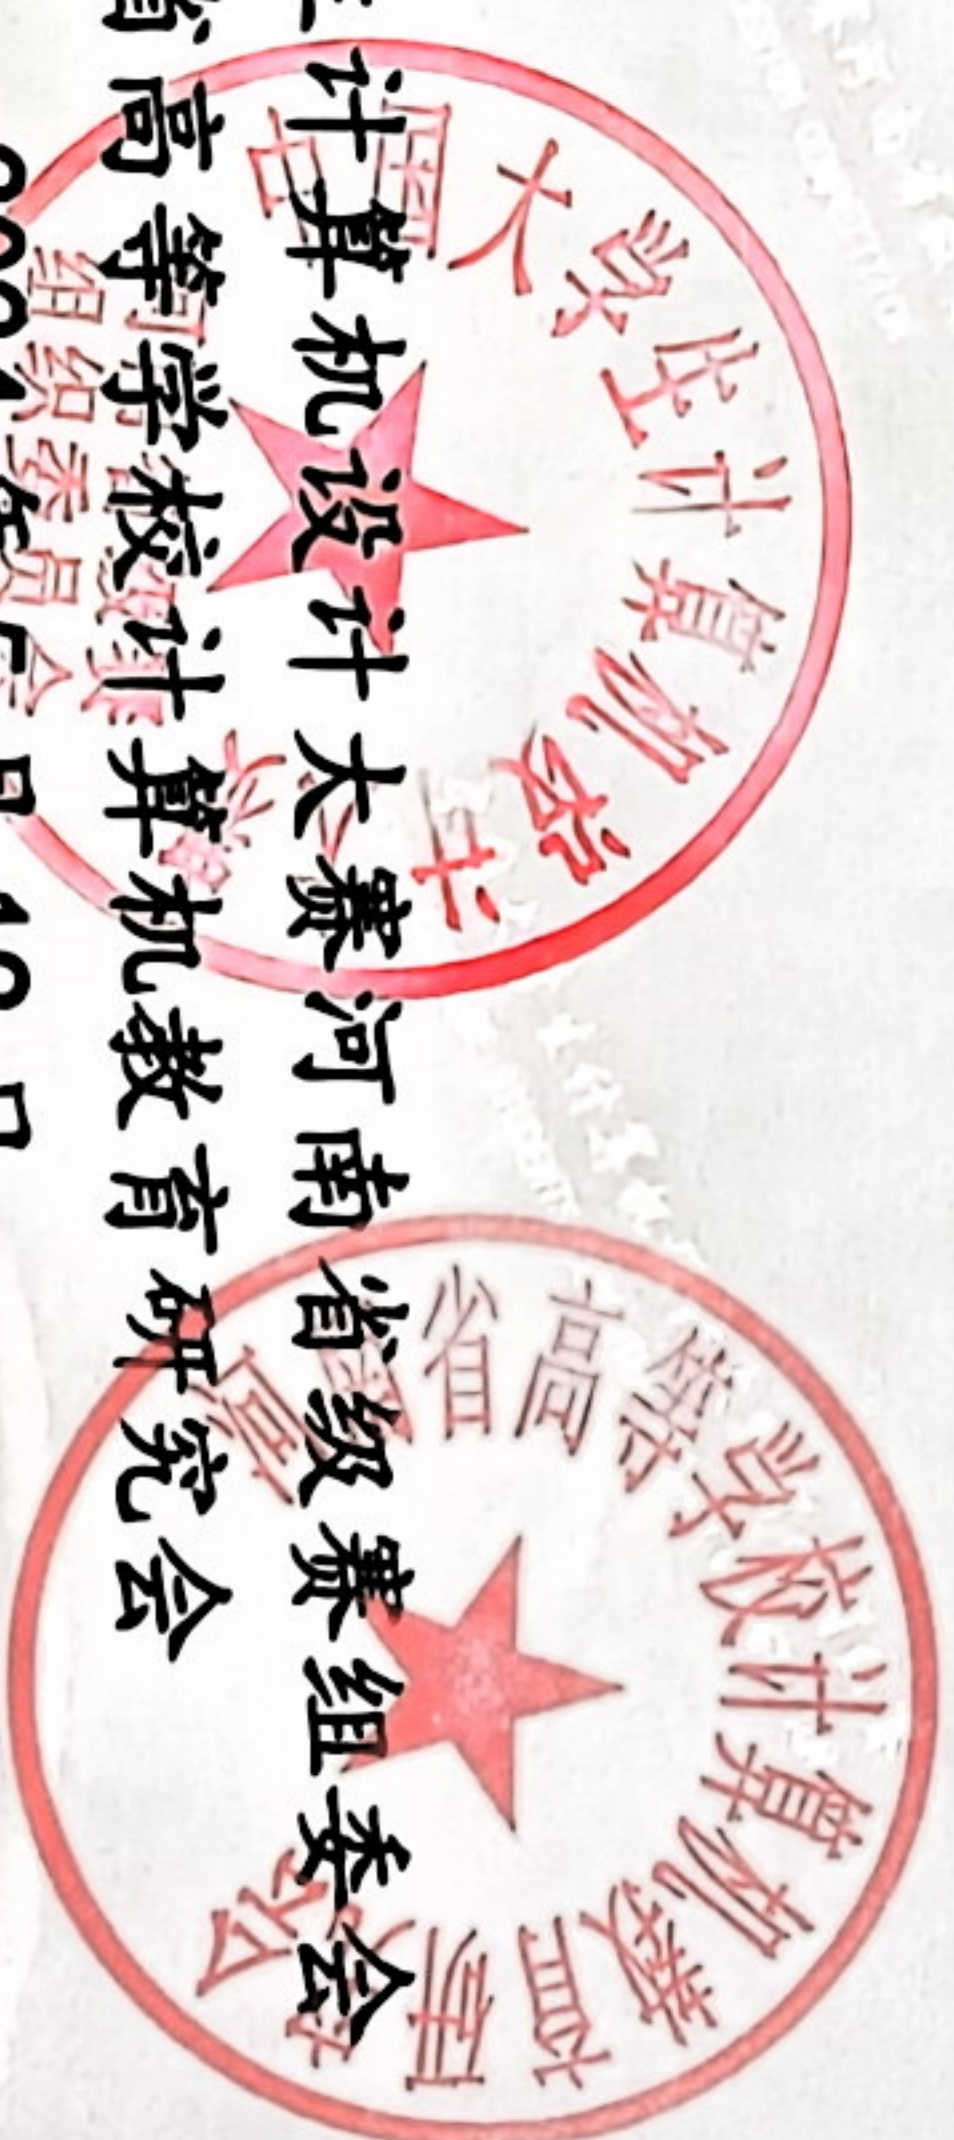 计算机设计大赛河南省级赛组委会
省高等学校计算机教育研究会
月 12 日
中国大学生计算机设计大赛
河南省级赛
组织委员会
河南省高等学校计算机教育研究会